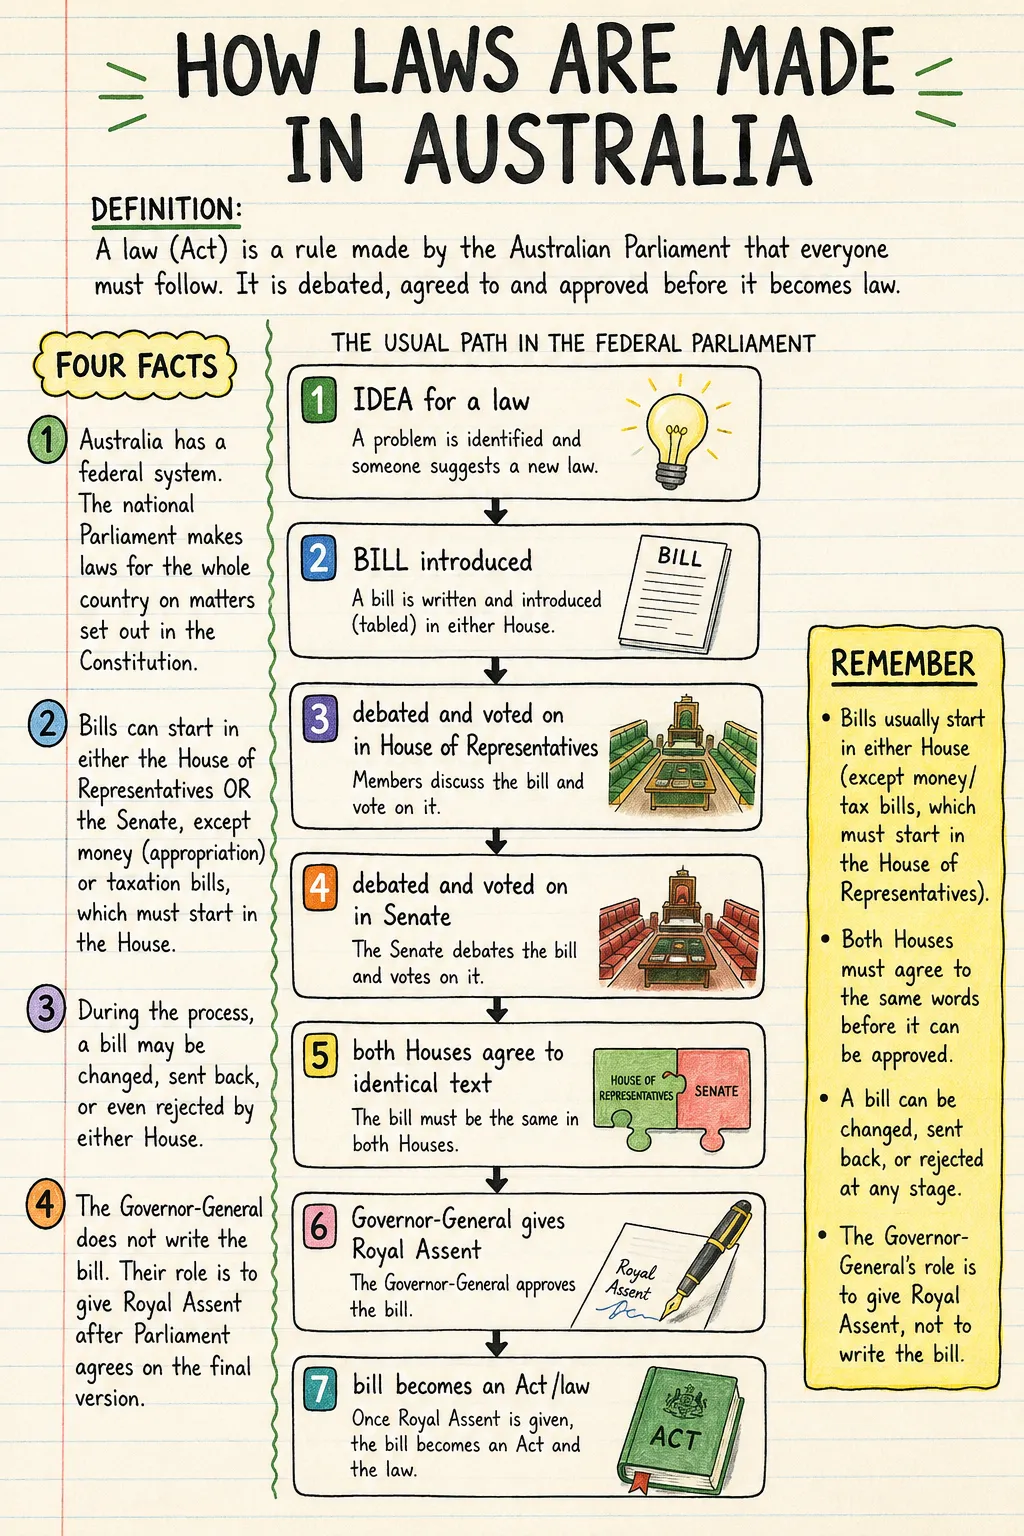 HOW LAWS ARE MADE
IN AUSTRALIA
DEFINITION:
A law (Act) is a rule made by the Australian Parliament that everyone
must follow. It is debated, agreed to and approved before it becomes law.
FOUR FACTS
1
Australia has a
federal system.
The national
Parliament makes
laws for the whole
country on matters
set out in the
Constitution.
2
Bills can start in
either the House of
Representatives OR
the Senate, except
money (appropriation)
or taxation bills,
which must start in
the House.
3
During the process,
a bill may be
changed, sent back,
or even rejected by
either House.
4
The Governor-General
does not write the
bill. Their role is to
give Royal Assent
after Parliament
agrees on the final
version.
THE USUAL PATH IN THE FEDERAL PARLIAMENT
1
IDEA for a law
A problem is identified and
someone suggests a new law.
2
BILL introduced
A bill is written and introduced
(tabled) in either House.
BILL
3
debated and voted on
in House of Representatives
Members discuss the bill and
vote on it.
4
debated and voted on
in Senate
The Senate debates the bill
and votes on it.
5
both Houses agree to
identical text
The bill must be the same in
both Houses.
HOUSE OF
REPRESENTATIVES
SENATE
6
Governor-General gives
Royal Assent
The Governor-General approves
the bill.
Royal
Assent
7
bill becomes an Act/law
Once Royal Assent is given,
the bill becomes an Act and
the law.
ACT
REMEMBER
• Bills usually start
in either House
(except money/
tax bills, which
must start in
the House of
Representatives).
• Both Houses
must agree to
the same words
before it can
be approved.
• A bill can be
changed, sent
back, or rejected
at any stage.
• The Governor-
General's role is
to give Royal
Assent, not to
write the bill.